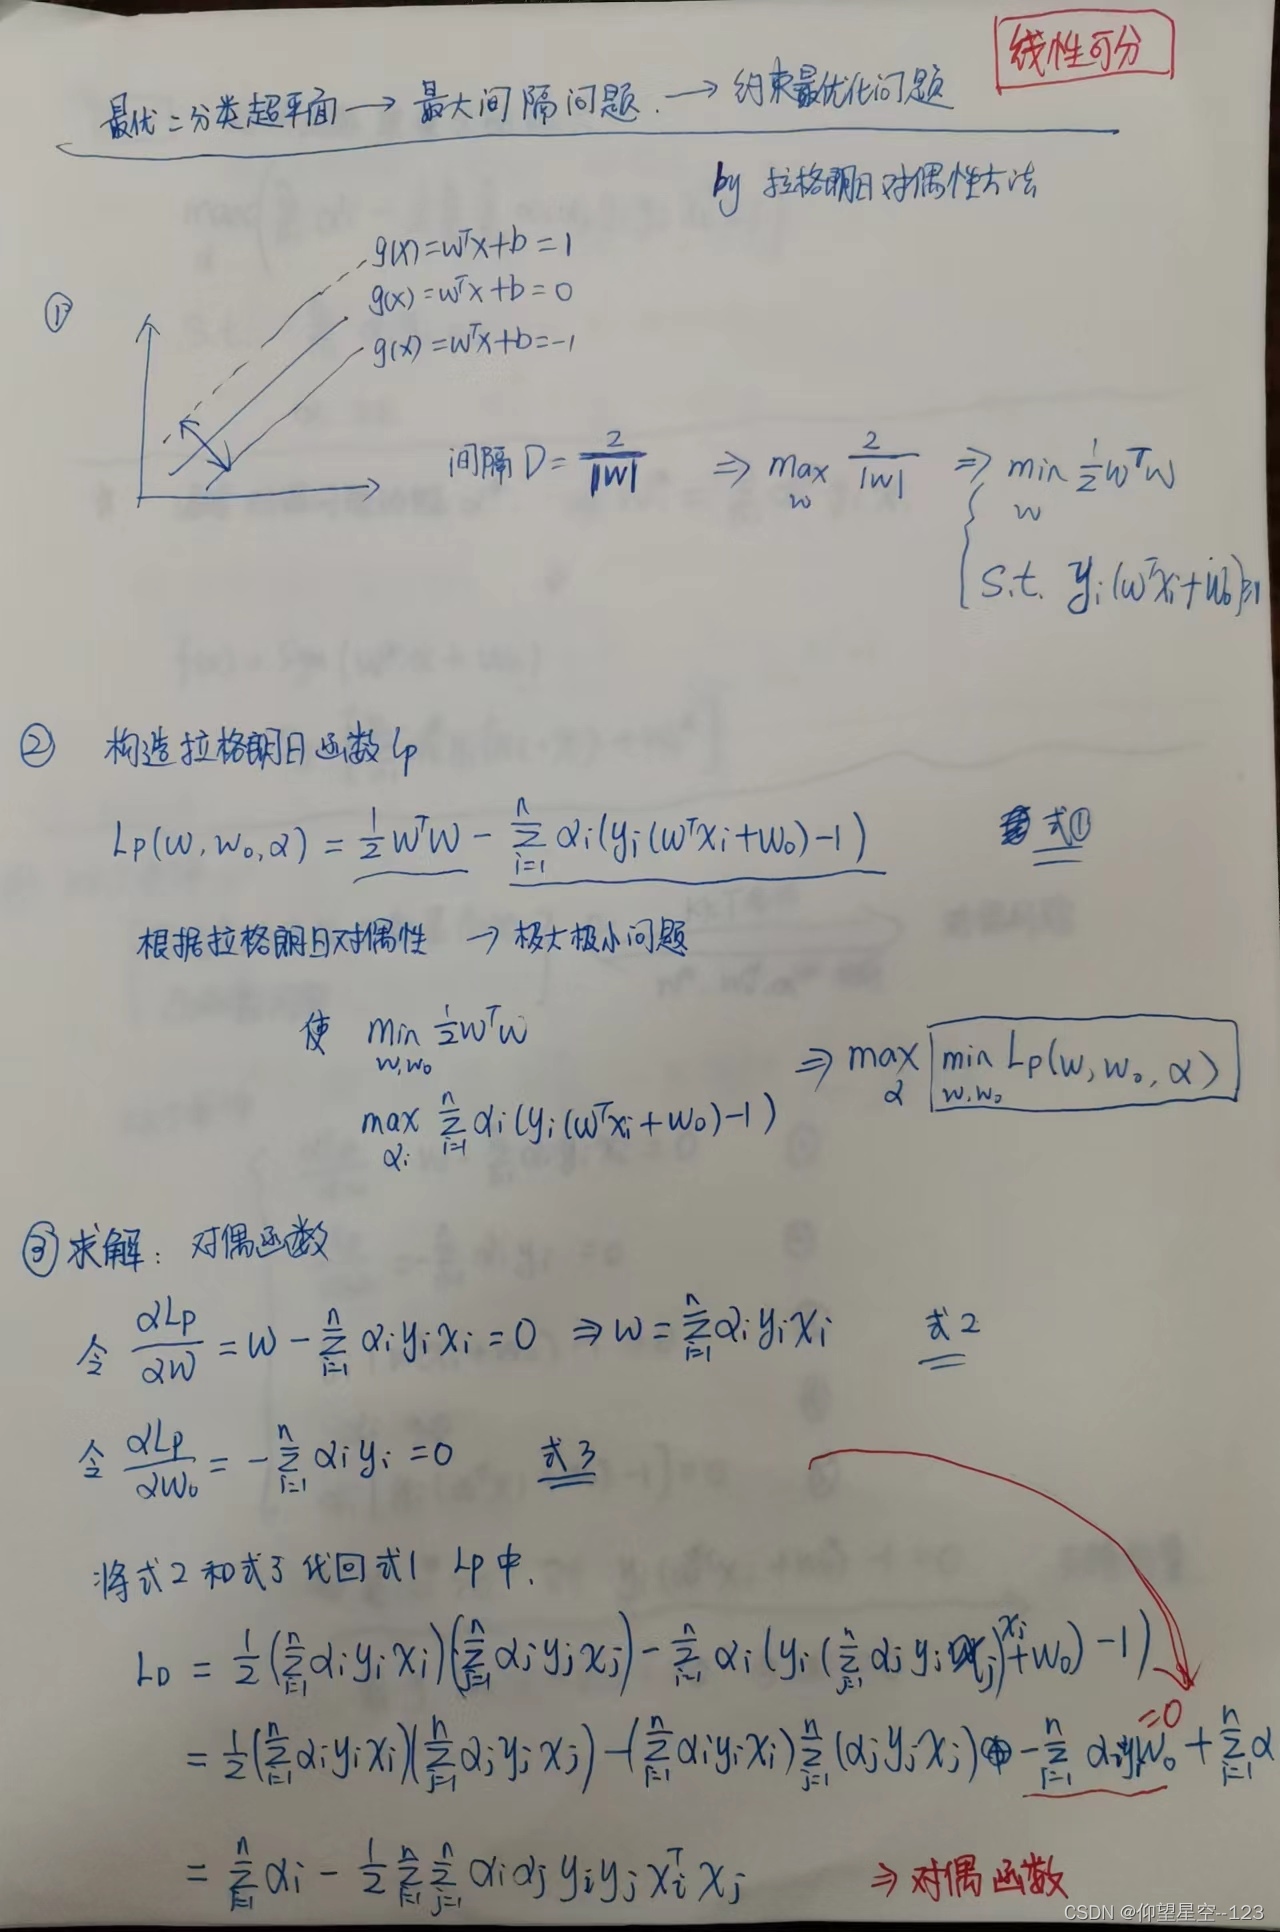 线性可分
最优二分类超平面 → 最大间隔问题. → 约束最优化问题
by 拉格朗日对偶性方法
① g(x) = wᵀx + b = 1
g(x) = wᵀx + b = 0
g(x) = wᵀx + b = -1
间隔 D = 2/|w| ⇒ max_w 2/|w| ⇒ { min_w ½wᵀw
s.t. yᵢ(wᵀxᵢ + w₀) ≥ 1
② 构造拉格朗日函数 Lp
Lp(w, w₀, α) = ½wᵀw - Σⁿᵢ₌₁ αᵢ(yᵢ(wᵀxᵢ + w₀) - 1) 式①
根据拉格朗日对偶性 → 极大极小问题
使 min_{w,w₀} ½wᵀw
max_{αᵢ} Σⁿᵢ₌₁ αᵢ(yᵢ(wᵀxᵢ + w₀) - 1) ⇒ max_α min_{w,w₀} Lp(w, w₀, α)
③ 求解: 对偶函数
令 αLp/αw = w - Σⁿᵢ₌₁ αᵢyᵢxᵢ = 0 ⇒ w = Σⁿᵢ₌₁ αᵢyᵢxᵢ 式2
令 αLp/αw₀ = -Σⁿᵢ₌₁ αᵢyᵢ = 0 式3
将式2和式3代回式1 Lp中.
L_D = ½(Σⁿᵢ₌₁ αᵢyᵢxᵢ)(Σⁿⱼ₌₁ αⱼyⱼxⱼ) - Σⁿᵢ₌₁ αᵢ(yᵢ(Σⁿⱼ₌₁ αⱼyⱼxⱼ)xᵢ + w₀) - 1)
= ½(Σⁿᵢ₌₁ αᵢyᵢxᵢ)(Σⁿⱼ₌₁ αⱼyⱼxⱼ) - (Σⁿᵢ₌₁ αᵢyᵢxᵢ)Σⁿⱼ₌₁(αⱼyⱼxⱼ) - Σⁿᵢ₌₁ αᵢyᵢw₀ + Σⁿᵢ₌₁ α
=0
= Σⁿᵢ₌₁ αᵢ - ½ Σⁿᵢ₌₁ Σⁿⱼ₌₁ αᵢαⱼyᵢyⱼxᵢᵀxⱼ ⇒ 对偶函数
CSDN @仰望星空--123